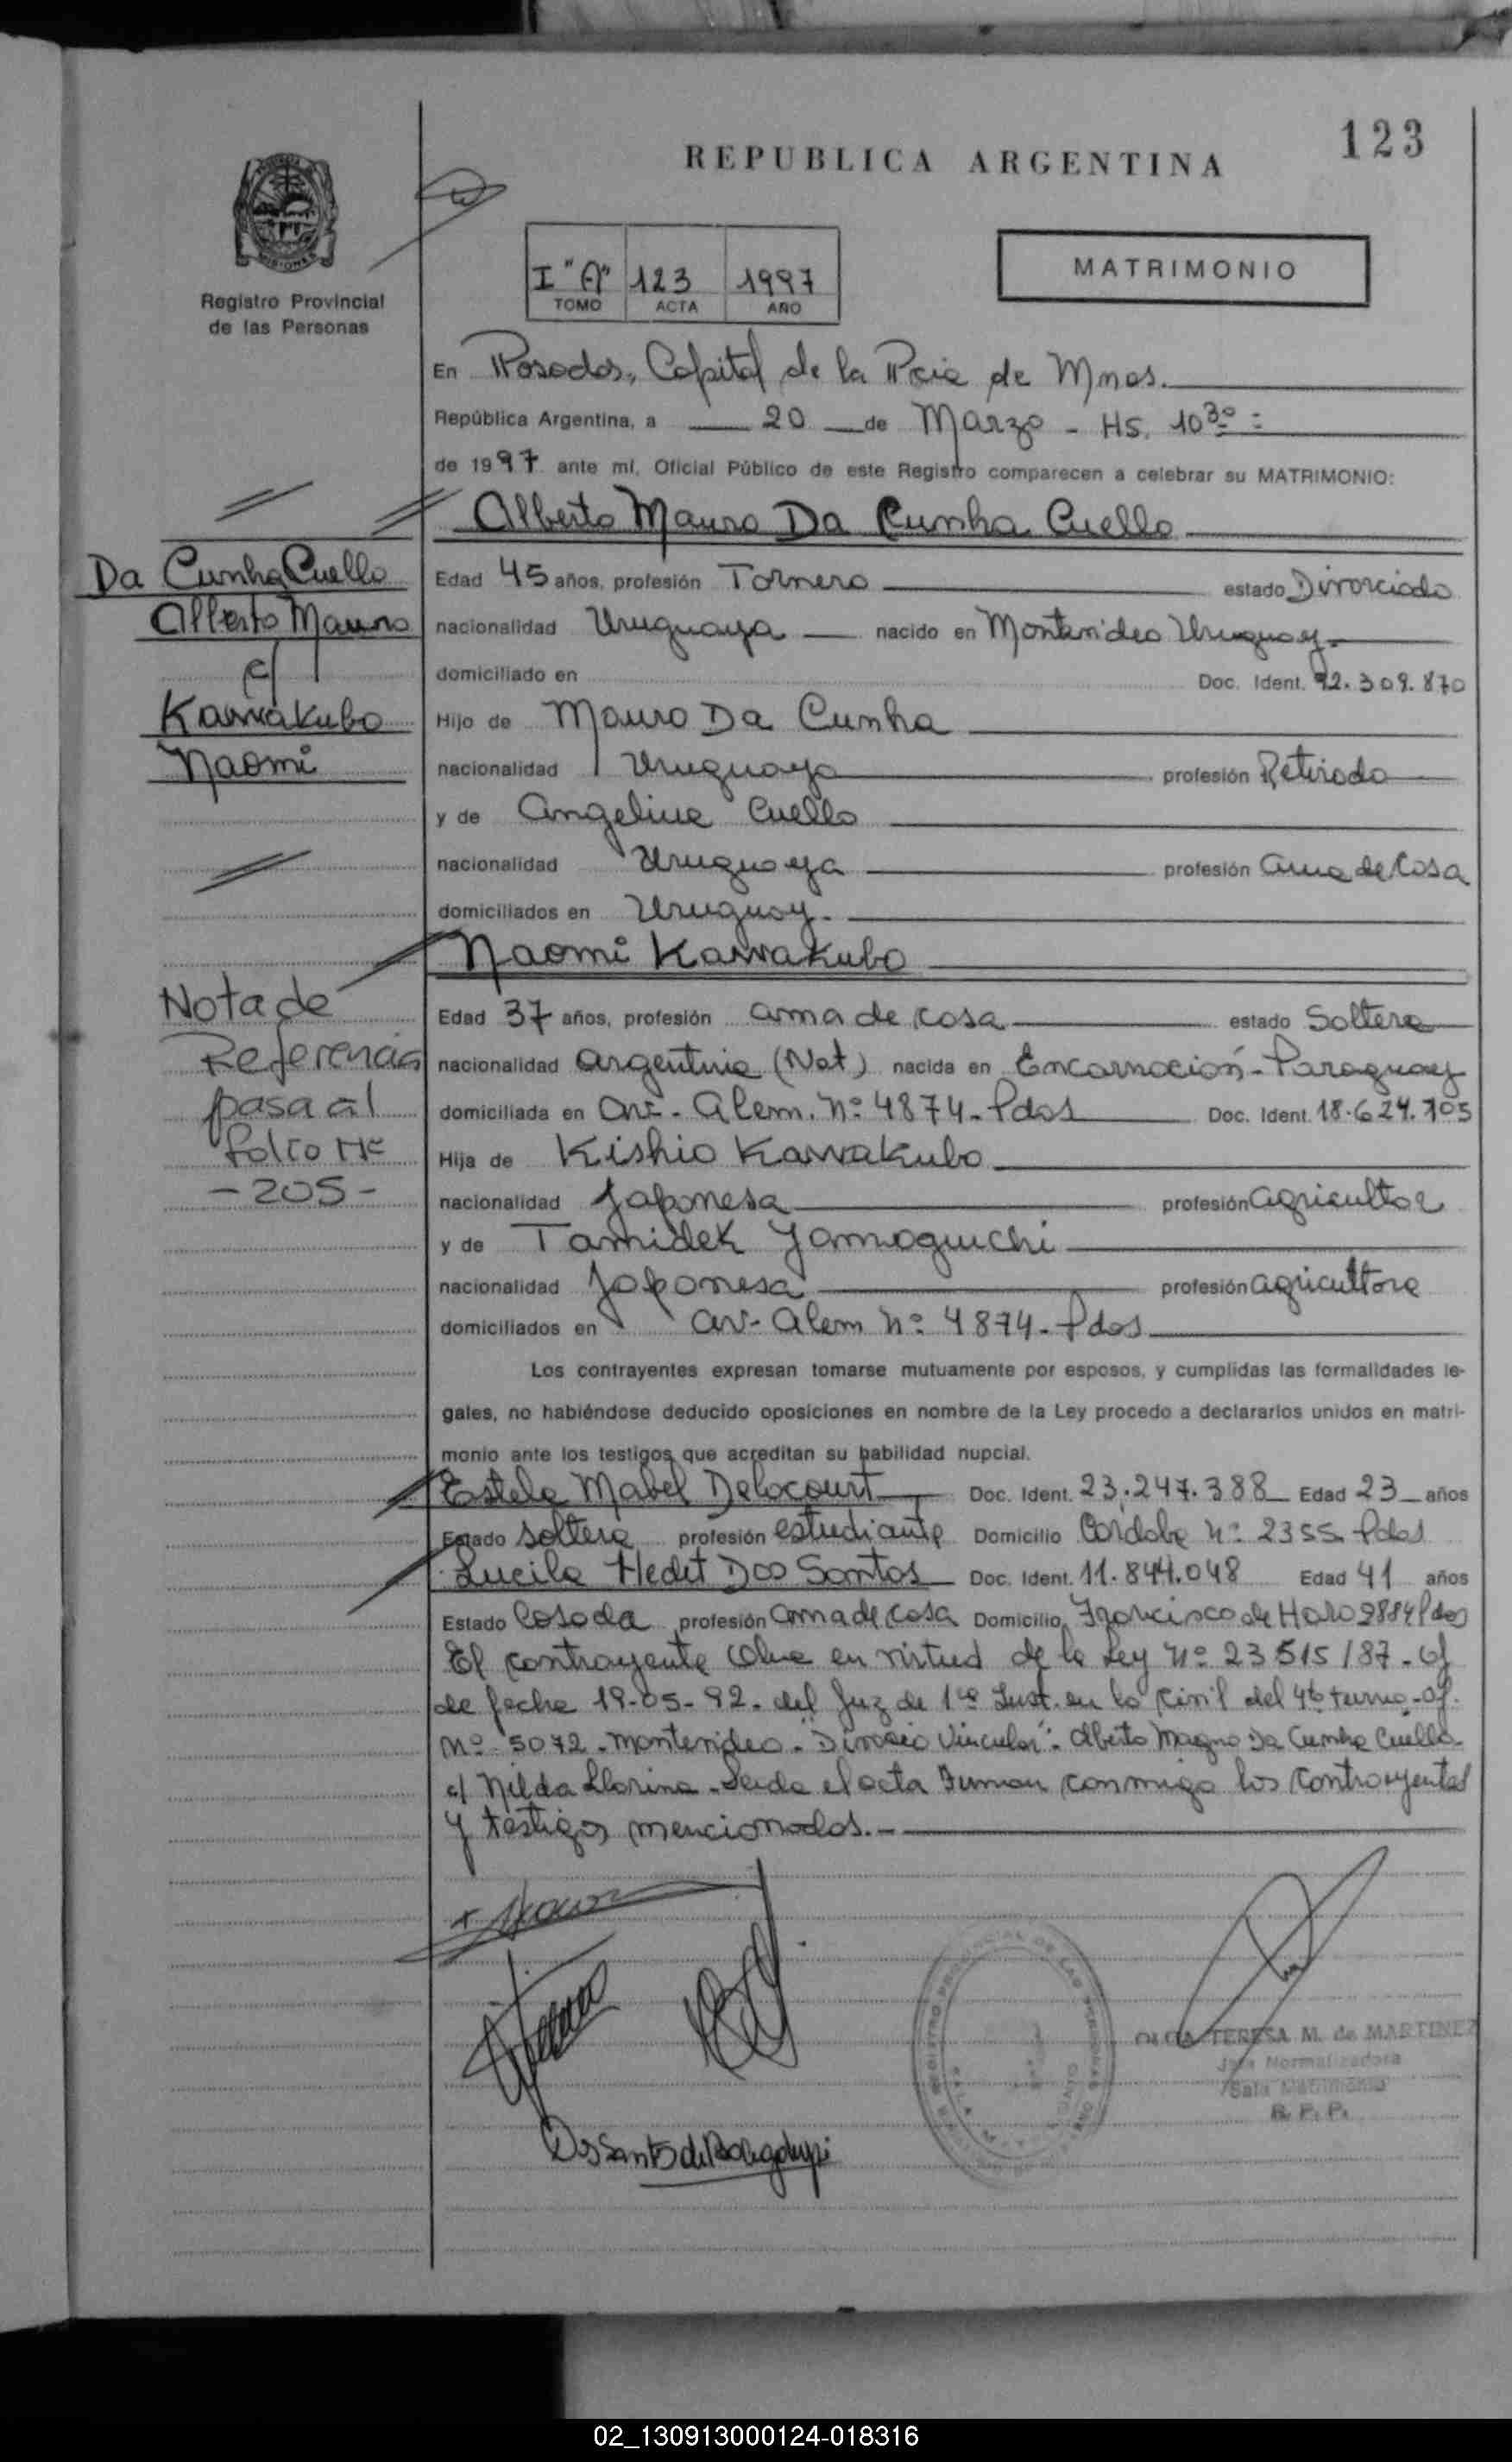 123
REPUBLICA ARGENTINA
MISIONES
Registro Provincial
de las Personas
I "A" 123 1997
TOMO ACTA AÑO
MATRIMONIO
En Posadas, Capital de la Pcia de Mnes.
República Argentina, a 20 de Marzo - Hs. 10 30 =
de 1997 ante mí, Oficial Público de este Registro comparecen a celebrar su MATRIMONIO:
Alberto Mauro Da Cunha Cuello
Edad 45 años, profesión Tornero estado Divorciado
nacionalidad Uruguaya nacido en Montevideo Uruguay
domiciliado en Doc. Ident. 92.309.870
Hijo de Mauro Da Cunha
nacionalidad Uruguaya profesión Retirado
y de Angelina Cuello
nacionalidad Uruguaya profesión Ama de Casa
domiciliados en Uruguay.
Naomi Kawakubo
Edad 37 años, profesión ama de casa estado Soltera
nacionalidad argentina (Nat) nacida en Encarnación - Paraguay
domiciliada en Av. Alem. Nº 4874 - Pdas Doc. Ident. 18.624.705
Hija de Kishio Kawakubo
nacionalidad Japonesa profesión agricultor
y de Tamidek Yamaguichi
nacionalidad Japonesa profesión agricultora
domiciliados en av- Alem Nº 4874 - Pdas
Los contrayentes expresan tomarse mutuamente por esposos, y cumplidas las formalidades le-
gales, no habiéndose deducido oposiciones en nombre de la Ley procedo a declararlos unidos en matri-
monio ante los testigos que acreditan su habilidad nupcial.
Estela Mabel Delocourt Doc. Ident. 23.247.388 Edad 23 años
Estado soltera profesión estudiante Domicilio Cordoba Nº 2355 Pdas
Lucila Hedit Dos Santos Doc. Ident. 11.844.048 Edad 41 años
Estado Casada profesión ama de casa Domicilio Francisco de Haro 2884 Pdas
El contrayente en virtud de la Ley Nº 23515/87 -
de fecha 19-05-92 - del Juz de 1ª Inst. en lo Civil del 4to turno - Of.
Nº 5072 - Montevideo - "Divorcio Vincular": Alberto Magno Da Cunha Cuello
c/ Nilda Llorina - Leida el acta firman conmigo los contrayentes
y testigos mencionados. -
Da Cunha Cuello
Alberto Mauro
c/
Kawakubo
Naomi
Nota de
Referencia
pasa al
folio Nº
- 205 -
Dos Santos de
OLGA TERESA M. de MARTINEZ
Jefa Normalizadora
Sala Matrimonio
R. P. P.
02_130913000124-018316